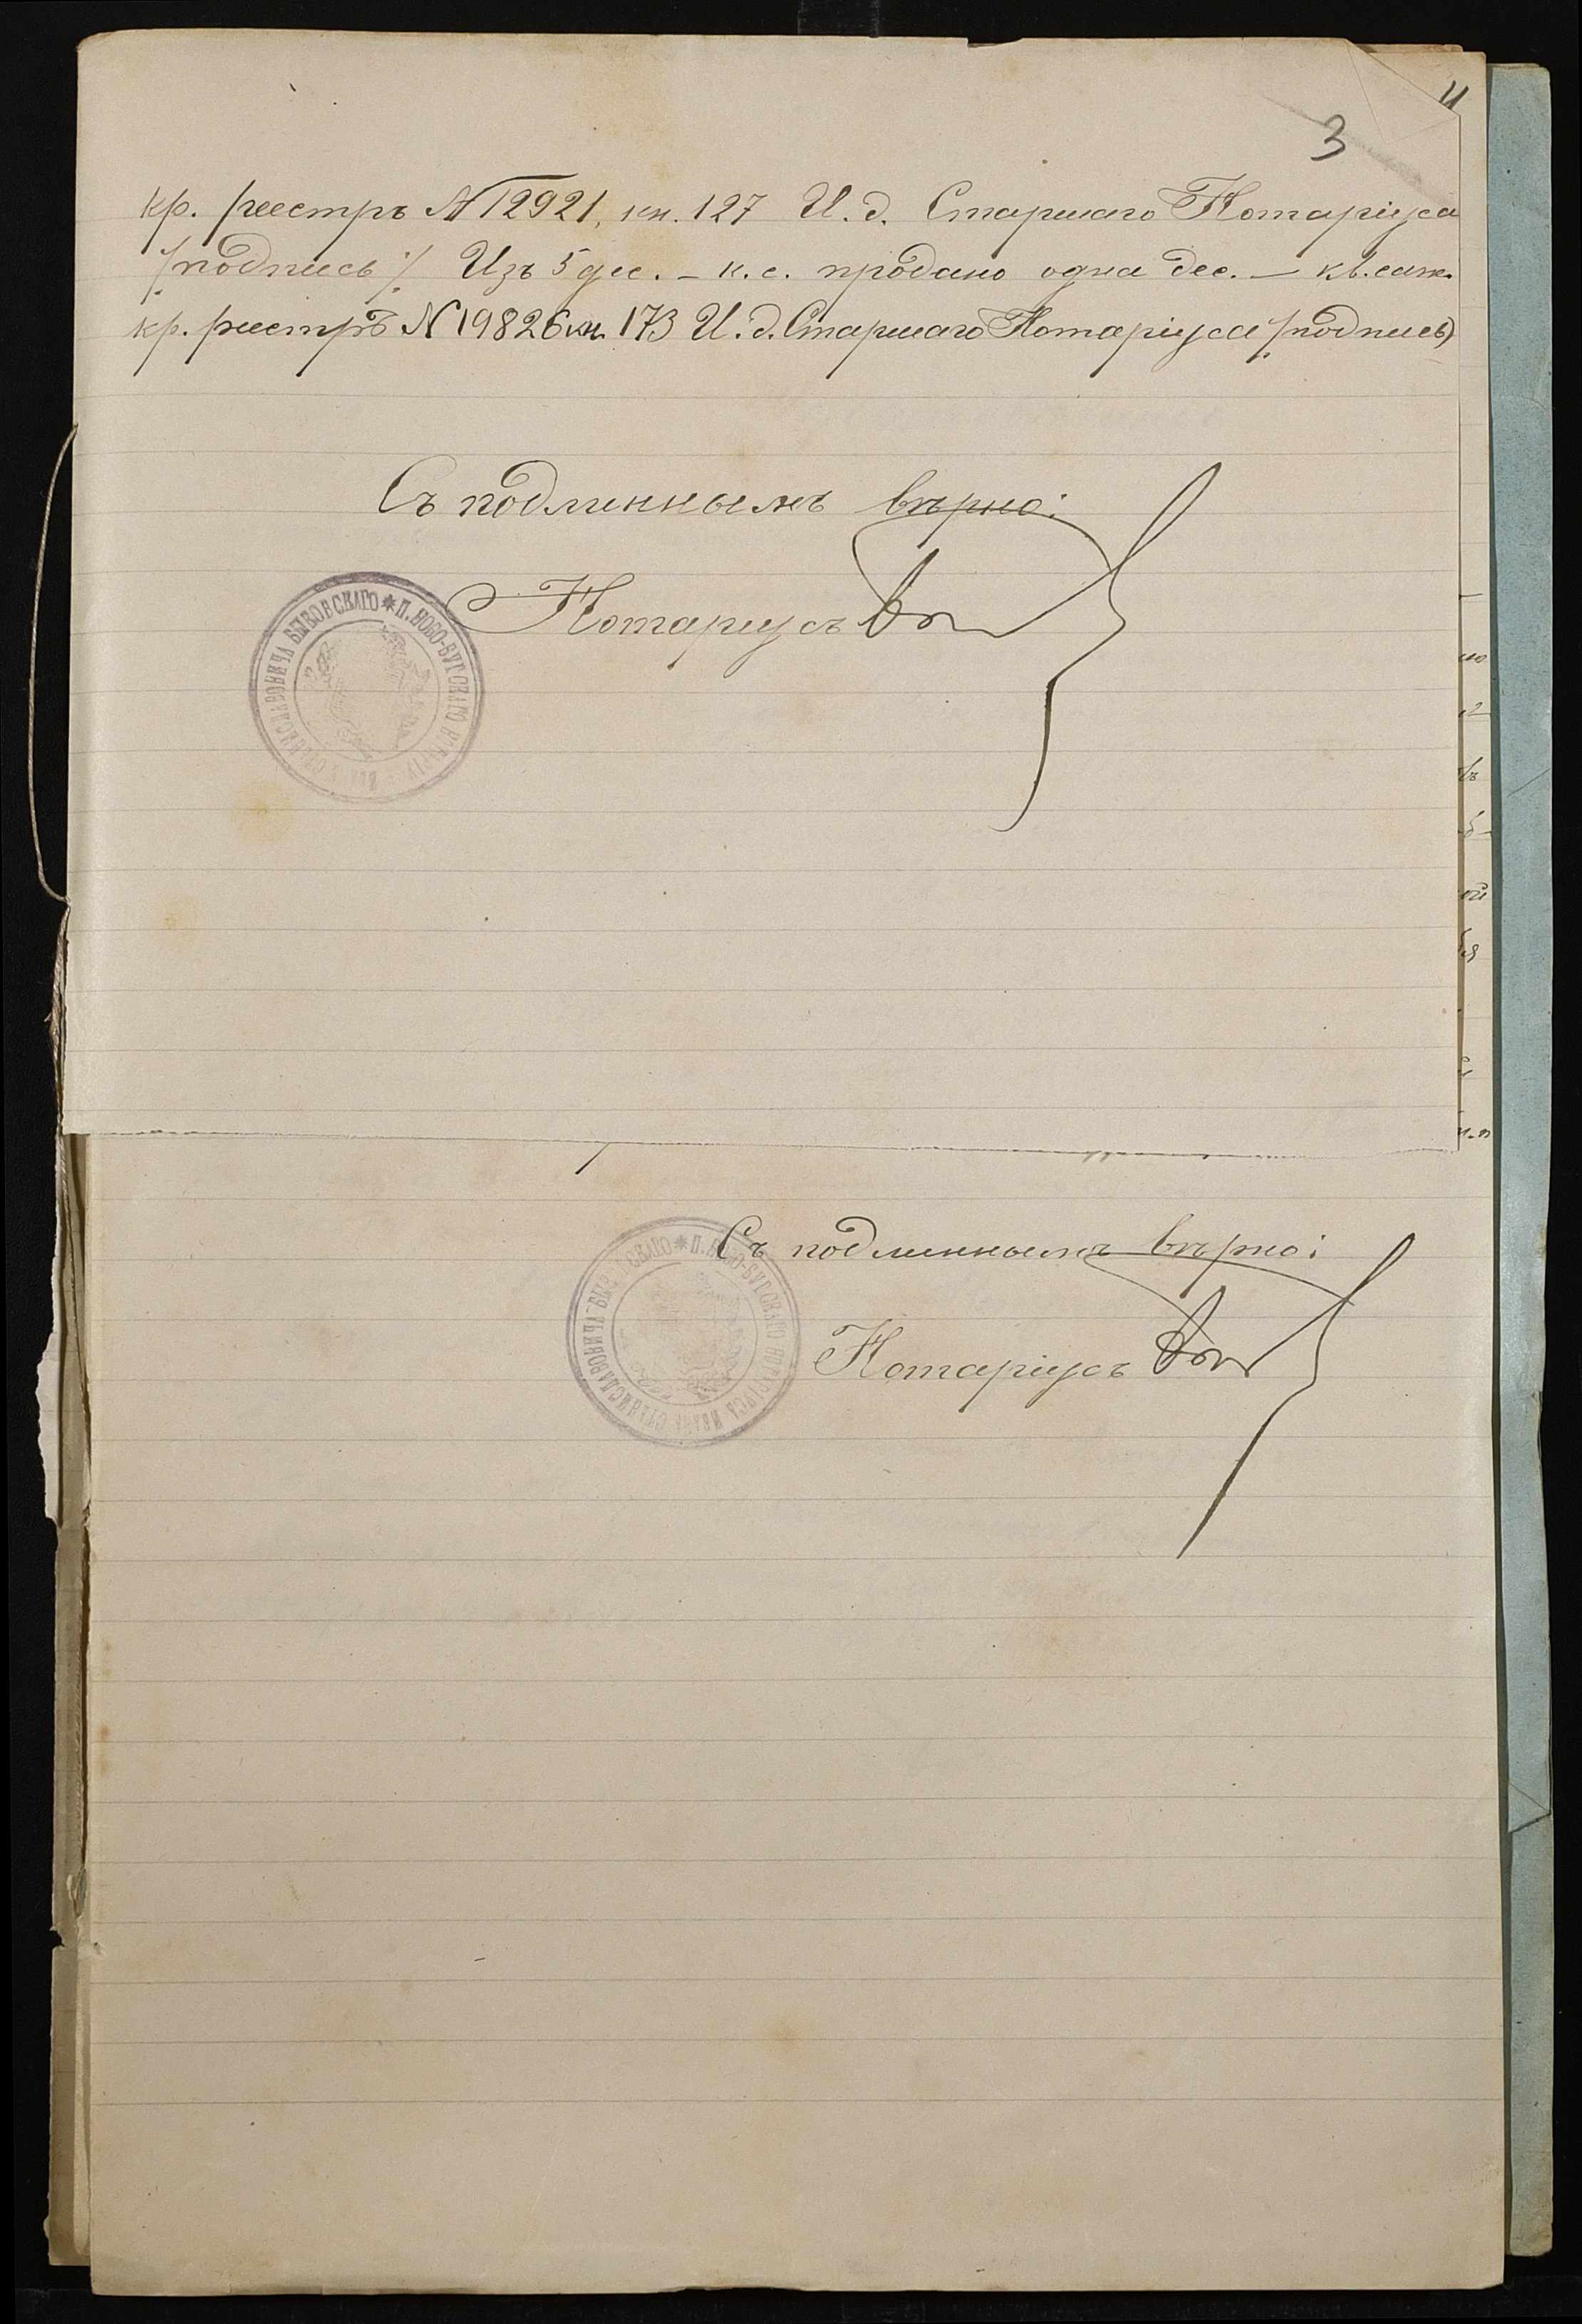 3
кр. реестръ № 12921, кн. 127 И. д. Старшаго Нотаріуса
/подпись/ Изъ 5 дес. – к. с. продано одна дес. — кв. саж.
кр. реестръ № 19826 кн. 173 И. д. Старшаго Нотаріуса /подпись/
Съ подлиннымъ вѣрно:
Нотаріусъ
СТАНИСЛАВОВИЧА БЫКОВСКАГО * П. НОВО-БУГСКАГО НОТАРІУСА
Съ подлиннымъ вѣрно:
Нотаріусъ
П. НОВО-БУГСКАГО НОТАРІУСА ИВАНА СТАНИСЛАВОВИЧА БЫКОВСКАГО *